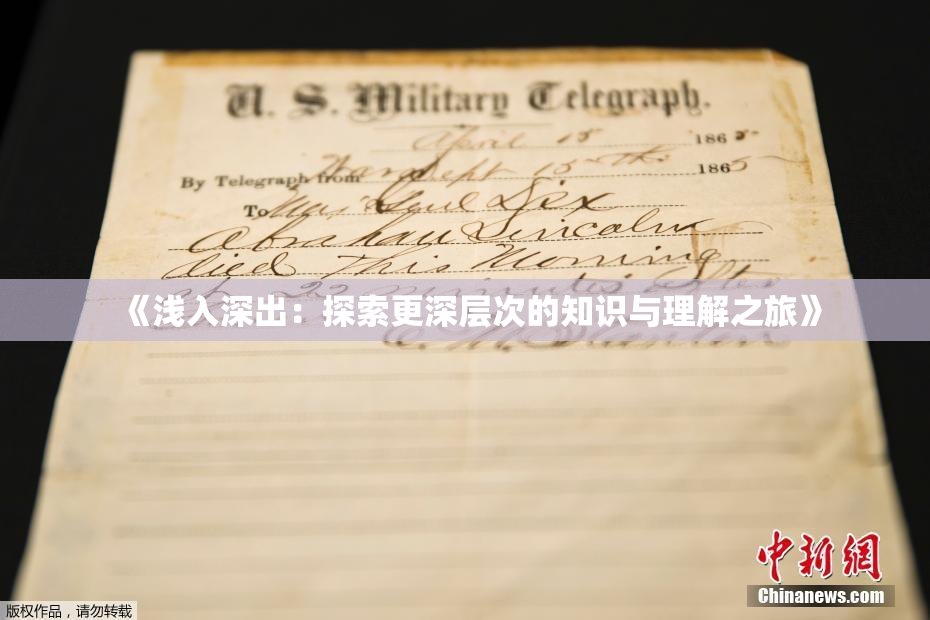 U. S. Military Telegraph.
April 15 1865
By Telegraph from War Dept 15th 1865
To Maj Genl Dix
Abraham Lincoln
died This Morning
at 22 minutes after
《浅入深出：探索更深层次的知识与理解之旅》
中新网
Chinanews.com
版权作品，请勿转载